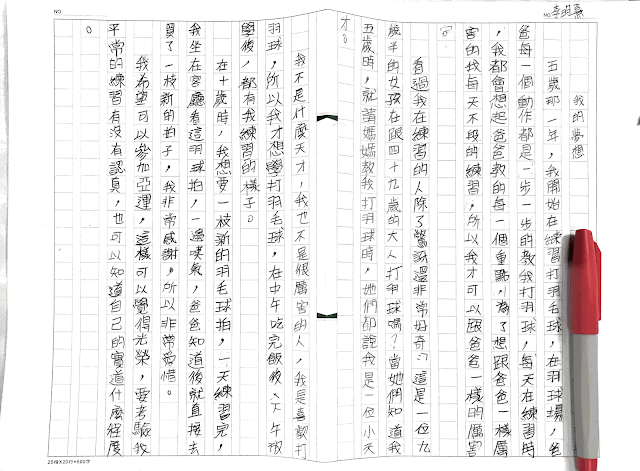 NO.
李昀熹
NO.
我的夢想
五歲那一年，我開始在練習打羽毛球，在羽球場，爸
爸每一個動作都是一步一步的教我打羽球，每天在練習時
，我都會想起爸爸教的每一個重點，為了想跟爸爸一樣厲
害的我每天不段的練習，所以我才可以跟爸爸一樣的厲害
。
看過我在練習的人除了驚訝還非常好奇：這是一位九
歲半的女孩在跟四十九歲的大人打羽球嗎？當她們知道我
五歲時，就請媽媽教我打羽球時，她們都說我是一位小天
才。
我不是什麼天才，我也不是很厲害的人，我是喜歡打
羽球，所以我才想學打羽毛球，在中午吃完飯後、下午放
學後，都有我練習的樣子。
在十歲時，我想要一枝新的羽毛球拍，一天練習完，
我坐在客廳看這羽球拍，一邊嘆氣，爸爸知道後就直接去
買了一枝新的拍子，我非常感謝，所以非常愛惜。
我希望可以參加亞運，這樣可以覺得光榮，要考驗我
平常的練習有沒有認真，也可以知道自己的實道什麼程度
。
25格X20行=500字